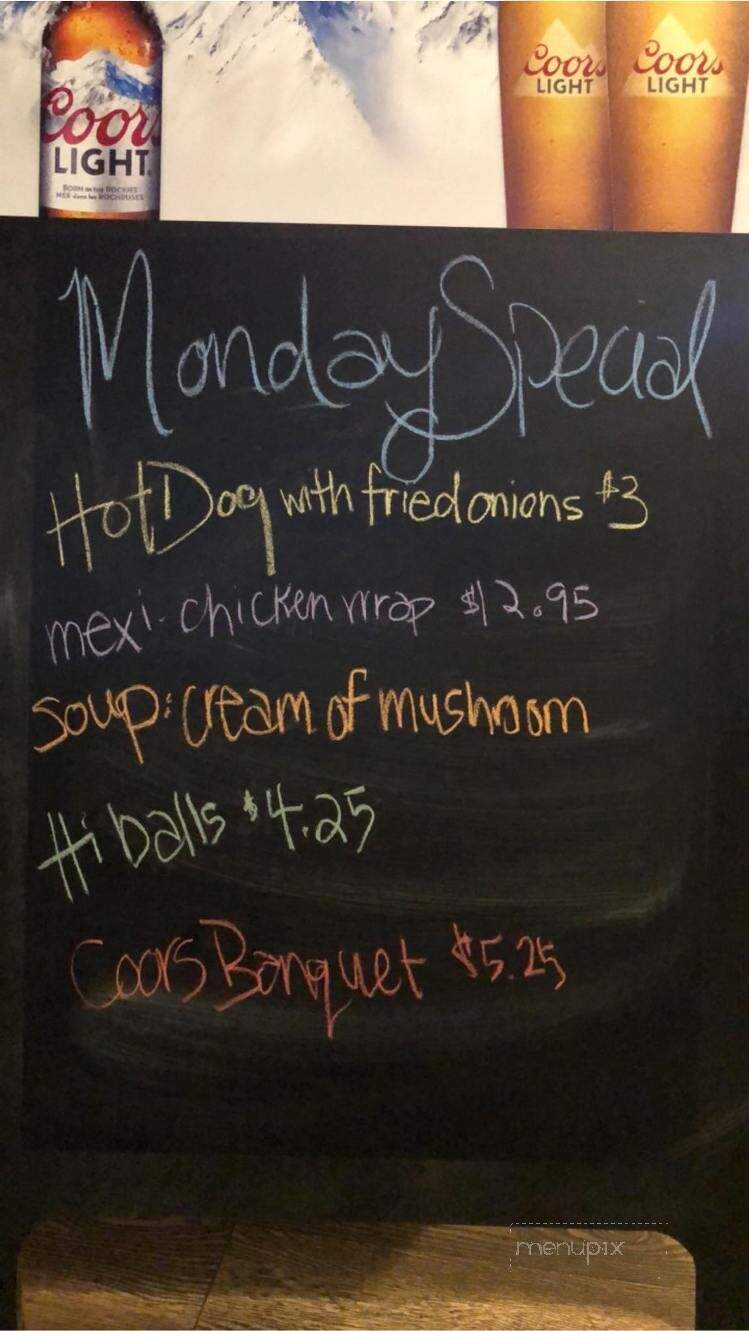 Coors
LIGHT
BORN IN THE ROCKIES
NÉE dans les ROCHEUSES
Coors
LIGHT
Coors
LIGHT
Monday Special
Hot Dog with fried onions $3
mexi-chicken wrap $12.95
soup: cream of mushroom
Hi balls $4.25
Coors Banquet $5.25
menupix